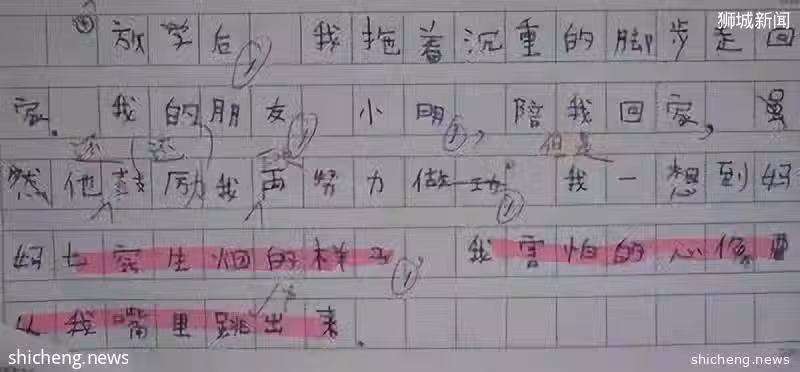 狮城新闻
放学后 我拖着沉重的脚步走回
家。我的朋友 小明,陪我回家,虽
还 还 但是
然他鼓励我再努力做功 我一想到妈
妈七窍生烟的样子 我害怕的心像要
从我嘴里跳出来.
shicheng.news
shicheng.news